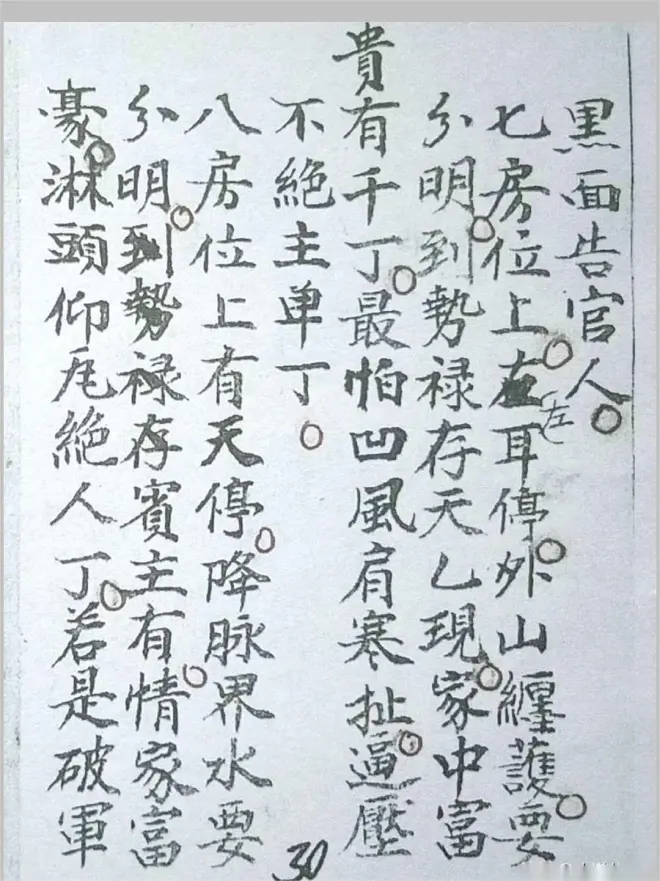 黑面告官人。
七房位上。左耳停。外山纏護。要
左
分明。到勢禄存天乙現。家中富
貴有千丁。最怕凹風肩寒扯。逼壓
不絕主单丁。
八房位上有天停。降脉界水要
分明。到勢禄存賓主有情。家富
豪。淋頭仰瓦絕人丁。若是破軍
30